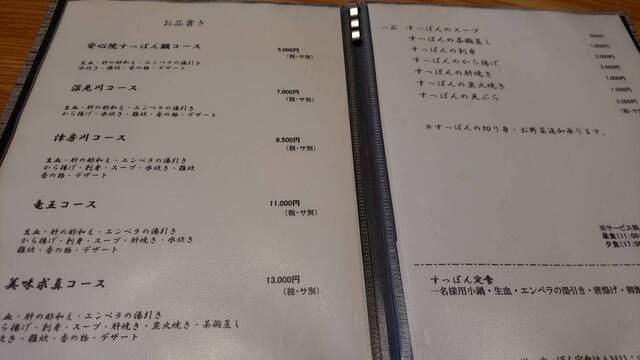 お品書き
安心院すっぽん鍋コース 5,000円
(税・サ別)
生血・肝の酢和え・エンペラの湯引き
水炊き・雑炊・香の物・デザート
深見川コース 7,000円
(税・サ別)
生血・肝の酢和え・エンペラの湯引き
から揚げ・水炊き・雑炊・香の物・デザート
津房川コース 9,500円
(税・サ別)
生血・肝の酢和え・エンペラの湯引き
から揚げ・刺身・スープ・水炊き・雑炊
香の物・デザート
竜王コース 11,000円
(税・サ別)
生血・肝の酢和え・エンペラの湯引き
から揚げ・刺身・スープ・肝焼き・水炊き
雑炊・香の物・デザート
美味求真コース 13,000円
(税・サ別)
生血・肝の酢和え・エンペラの湯引き
から揚げ・刺身・スープ・肝焼き・炭火焼き・茶碗蒸し
水炊き・雑炊・香の物・デザート
一品 すっぽんのスープ
すっぽんの茶碗蒸し
すっぽんの刺身
すっぽんのから揚げ
すっぽんの肝焼き
すっぽんの炭火焼き
すっぽんの天ぷら
※すっぽんの切り身・お野菜追加承ります。
※サービス料
昼食(11:00
夕食(17:00
すっぽん定食
一名様用小鍋・生血・エンペラの湯引き・唐揚げ・